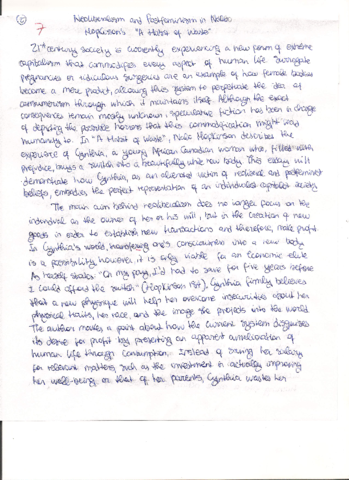 5
7
Neoliberalism and Postfeminism in Nalo
Hopkinson's "A Habit of Waste"
21st century society is currently experiencing a new form of extreme
capitalism that commodifies every aspect of human life. Surrogate
pregnancies or ridiculous surgeries are an example of how female bodies
become a mere product, allowing this system to perpetuate the idea of
consumerism through which it maintains itself. Although the exact
consequences remain mostly unknown, speculative fiction has been in charge
of depicting the possible horrors that this commodification might lead
humanity to. In "A Habit of Waste", Nalo Hopkinson describes the
experience of Cynthia, a young African Canadian woman who, filled with
prejudice, buys a switch into a beautifully white new body. This essay will
demonstrate how Cynthia, as an alienated victim of neoliberal and postfeminist
beliefs, embodies the perfect representation of an individualist capitalist society.
The main aim behind neoliberalism does no longer focus on the
individual as the owner of her or his will, but in the creation of new
goods in order to establish new transactions and therefore, make profit.
In Cynthia's world, transferring one's consciousness into a new body
is a possibility, however, it is only viable for an economic elite.
As herself states: "On my pay, I'd had to save for five years before
I could afford the switch" (Hopkinson). Cynthia firmly believes
that a new physique will help her overcome insecurities about her
physical traits, her race, and the image she projects into the world.
The author makes a point about how the current system disguises
its desire for profit by presenting an apparent amelioration of
human life through consumption. Instead of using her salary
for relevant matters such as the investment in actually improving
her well-being or that of her parents, Cynthia wastes her